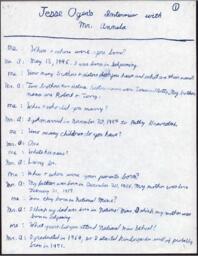 ①
Jesse Ogata Interview with
Mr. Annala
me: When + where were you born?
Mr. A: May 13, 1945. I was born in Ishpeming.
me: How many brothers + sisters did you have and what are their names?
Mr. A: Two brothers two sisters. Sisters names were My
brothers name are Robert + Terry.
me: When + who did you marry?
Mr. A: I got married in December 20, 1969 to Patty
me: How many children do you have?
Mr. A: One
me: What's his name?
Mr. A:
me: When + where were your parents born?
Mr. A: My father was born in December 20, 1925. My mother was born
February 21, 1927.
me: Were they born in National Mine?
Mr. A: I think my dad was born in National Mine I think my mother was
born in Ishpeming.
me: What years did you attend National Mine School?
Mr. A: I graduated in 1964, so I started kindergarten well it probably
been in 1951.